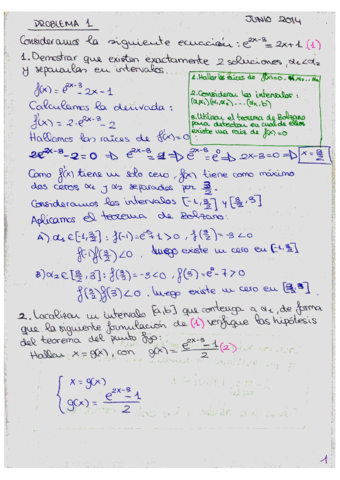 PROBLEMA 1
JUNIO 2014
Consideramos la siguiente ecuación: e^{2x-3} = 2x+1 (1)
1. Demostrar que existen exactamente 2 soluciones, α₁<α₂
y separarlas en intervalos.
f(x) = e^{2x-3} - 2x - 1
Calculamos la derivada:
f'(x) = 2·e^{2x-3} - 2
Hallamos las raíces de f'(x)=0
1. Hallar las raíces de f'(x)=0
2. Considerar los intervalos:
(a,x₁)(x₁,x₂)...(xₙ,b)
3. Utilizar el teorema de Bolzano
para detectar en cual de ellos
existe una raiz de f(x)=0
2e^{2x-3} - 2 = 0 ⇒ e^{2x-3} = 1 ⇒ e^{2x-3} = e^0 ⇒ 2x-3=0 ⇒ x = 3/2
Como f'(x) tiene un solo cero, f(x) tiene como máximo
dos ceros x₁ y x₂ separados por 3/2.
Consideramos los intervalos [-1, 3/2] y [3/2, 3]
Aplicamos el teorema de Bolzano:
A) α₁ ∈ [-1, 3/2] : f(-1) = e^{-5}+1 > 0, f(3/2) = -3 < 0
f(-1)f(3/2) < 0. Luego existe un cero en [-1, 3/2]
B) α₂ ∈ [3/2, 3] : f(3/2) = -3 < 0, f(3) = e^3 - 7 > 0
f(3/2) f(3) < 0. Luego existe un cero en [3/2, 3]
2. Localizar un intervalo [a,b] que contenga a α₁, de forma
que la siguiente formulación de (1) verifique las hipótesis
del teorema del punto fijo:
Hallar x = g(x), con g(x) = (e^{2x-3} - 1)/2 (2)
{ x = g(x)
g(x) = (e^{2x-3} - 1)/2
1